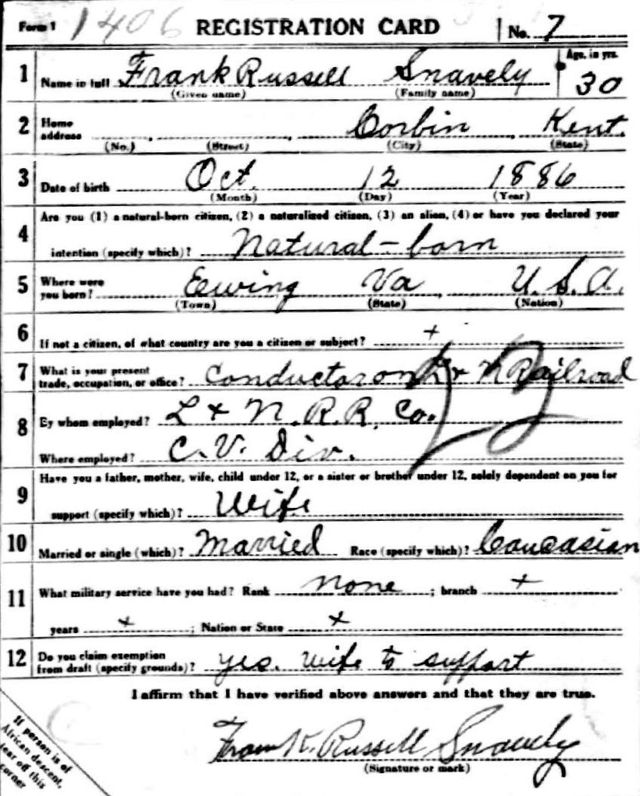 Form 1 1406 REGISTRATION CARD No. 7
1 Name in full Frank Russell Snavely Age, in yrs. 30
(Given name) (Family name)
2 Home address Corbin, Kent.
(No.) (Street) (City) (State)
3 Date of birth Oct. 12 1886
(Month) (Day) (Year)
Are you (1) a natural-born citizen, (2) a naturalized citizen, (3) an alien, (4) or have you declared your
4 intention (specify which)? Natural-born
5 Where were you born? Ewing Va U.S.A.
(Town) (State) (Nation)
6 If not a citizen, of what country are you a citizen or subject? +
7 What is your present trade, occupation, or office? Conductor on L + N Railroad
8 By whom employed? L + N. R.R. Co.
Where employed? C.V. Div.
Have you a father, mother, wife, child under 12, or a sister or brother under 12, solely dependent on you for
9 support (specify which)? Wife
10 Married or single (which)? Married Race (specify which)? Caucasian
11 What military service have you had? Rank none ; branch +
years + ; Nation or State +
12 Do you claim exemption from draft (specify grounds)? yes. wife to support
I affirm that I have verified above answers and that they are true.
Frank Russell Snavely
(Signature or mark)
If person is of
African descent,
tear off this
corner